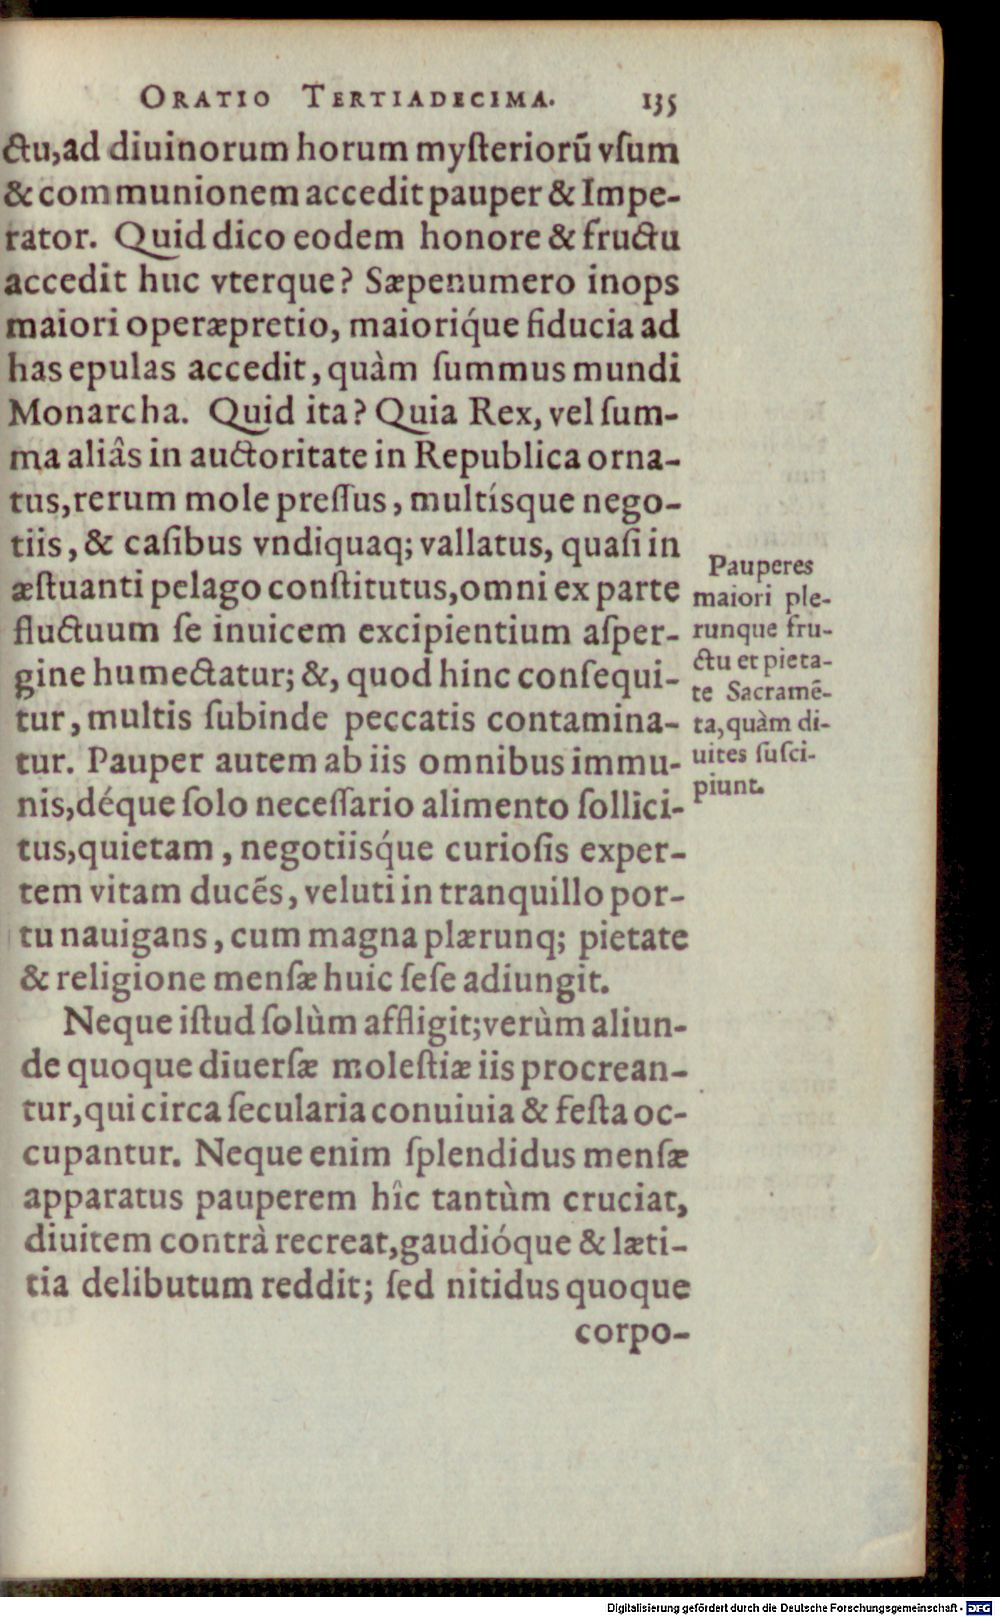 ORATIO TERTIADECIMA. 135
ctu,ad diuinorum horum myſteriorū vſum
& communionem accedit pauper & Impe-
rator. Quid dico eodem honore & fructu
accedit huc vterque? Sæpenumero inops
maiori operæpretio, maioriq́ue fiducia ad
has epulas accedit, quàm ſummus mundi
Monarcha. Quid ita? Quia Rex, vel ſum-
ma aliâs in auctoritate in Republica orna-
tus,rerum mole preſſus, multísque nego-
tiis, & caſibus vndiquaq; vallatus, quaſi in
æſtuanti pelago conſtitutus,omni ex parte
fluctuum ſe inuicem excipientium aſper-
gine humectatur; &, quod hinc conſequi-
tur, multis ſubinde peccatis contamina-
tur. Pauper autem ab iis omnibus immu-
nis,déque ſolo neceſſario alimento ſollici-
tus,quietam, negotiisq́ue curioſis exper-
tem vitam ducẽs, veluti in tranquillo por-
tu nauigans, cum magna plærunq; pietate
& religione menſæ huic ſeſe adiungit.
Pauperes
maiori ple-
runque fru-
ctu et pieta-
te Sacramẽ-
ta,quàm di-
uites ſuſci-
piunt.
Neque iſtud ſolùm affligit;verùm aliun-
de quoque diuerſæ moleſtiæ iis procrean-
tur,qui circa ſecularia conuiuia & feſta oc-
cupantur. Neque enim ſplendidus menſæ
apparatus pauperem hîc tantùm cruciat,
diuitem contrà recreat,gaudióque & læti-
tia delibutum reddit; ſed nitidus quoque
corpo-
Digitalisierung gefördert durch die Deutsche Forschungsgemeinschaft - DFG